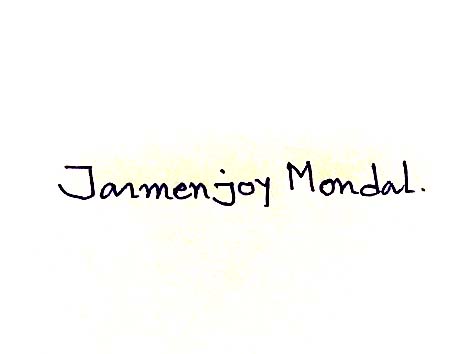 Janmenjoy Mondal.